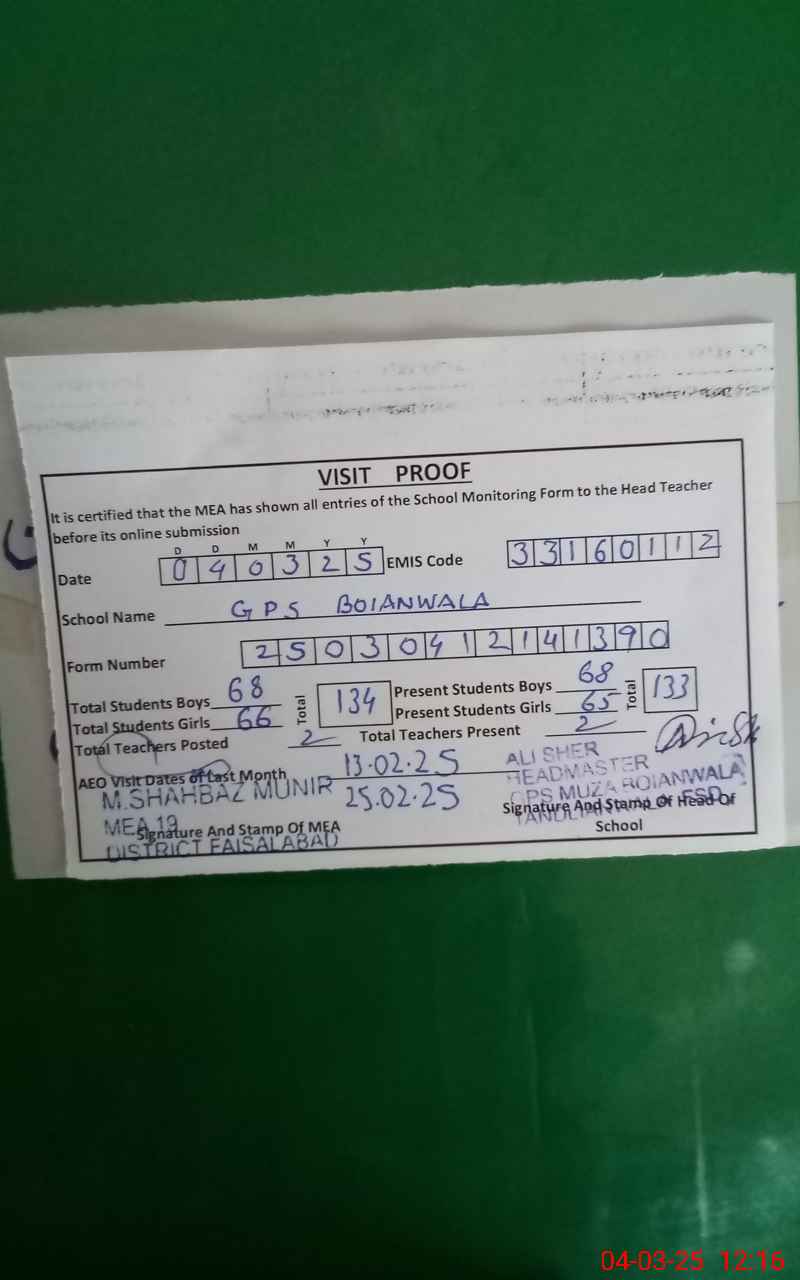 VISIT PROOF
It is certified that the MEA has shown all entries of the School Monitoring Form to the Head Teacher
before its online submission
D D M M Y Y
Date 0 4 0 3 2 5 EMIS Code 3 3 1 6 0 1 1 2
School Name GPS BOIANWALA
Form Number 2 5 0 3 0 4 1 2 1 4 1 3 9 0
Total Students Boys 68 Total 134 Present Students Boys 68 Total 133
Total Students Girls 66 Present Students Girls 65
Total Teachers Posted 2 Total Teachers Present 2
AEO Visit Dates of Last Month 13.02.25
25.02.25
M.SHAHBAZ MUNIR
MEA 19
DISTRICT FAISALABAD
Signature And Stamp Of MEA
ALI SHER
HEADMASTER
GPS MUZA BOIANWALA
FSD
Signature And Stamp Of Head Of
School
04-03-25 12:16